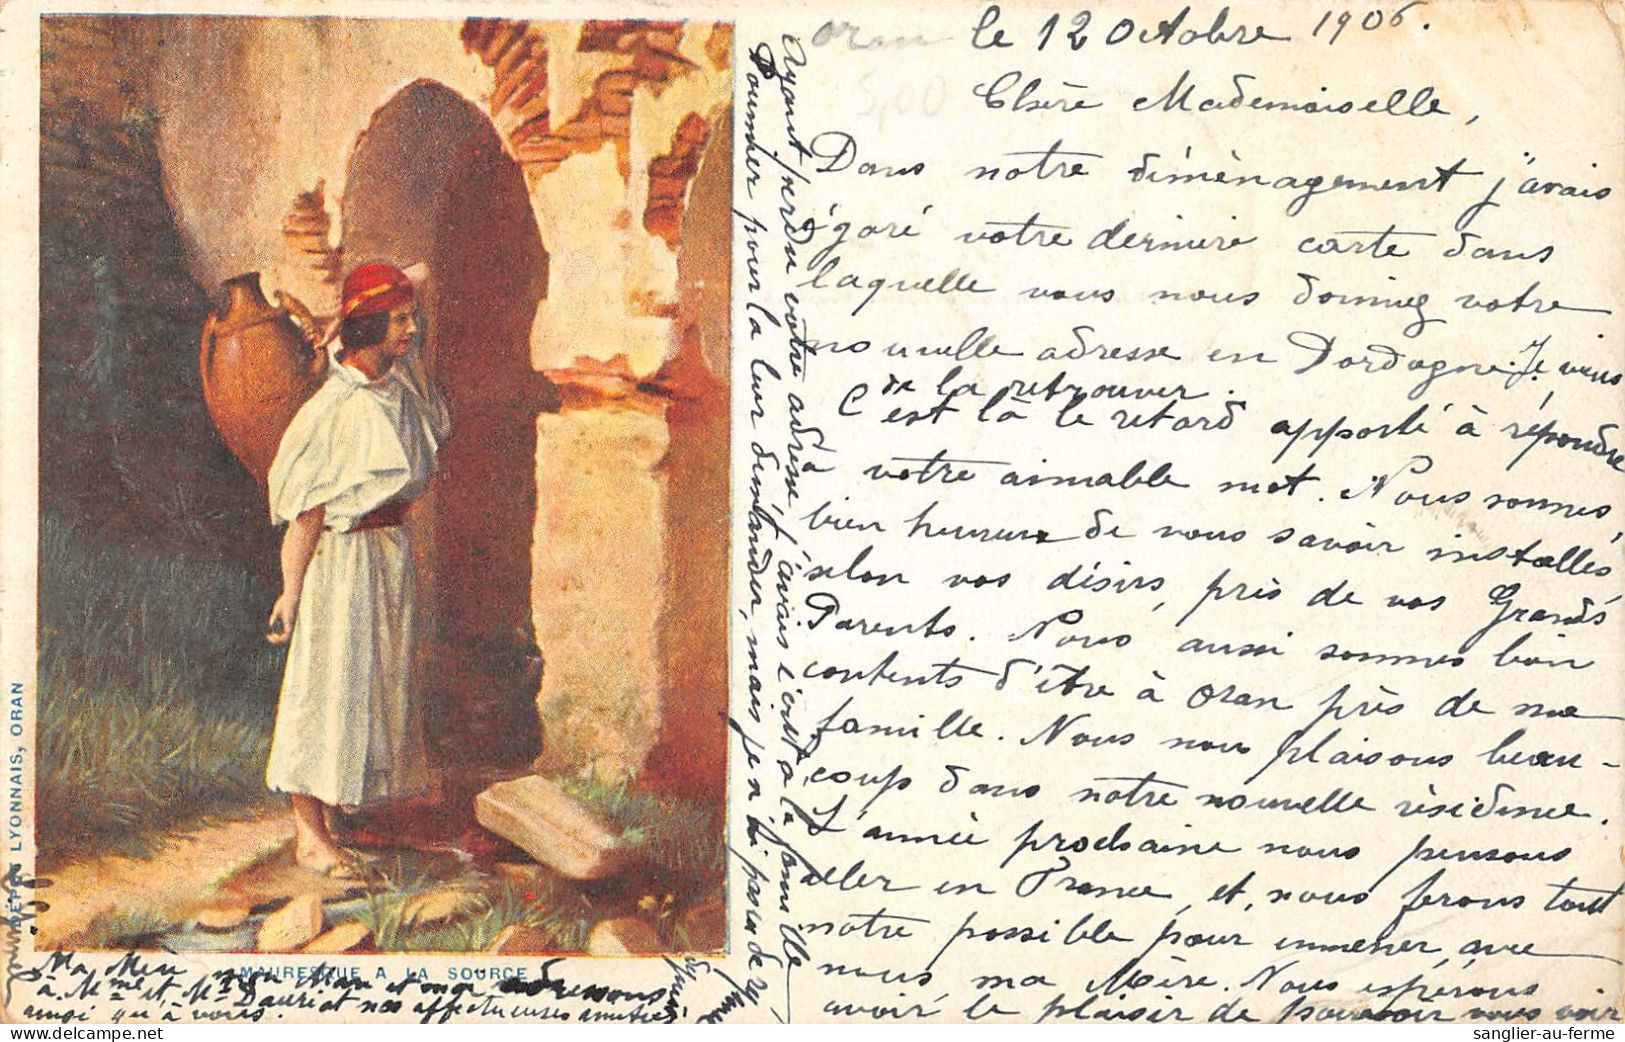 le 12 Octobre 1906.
Chère Mademoiselle,
Dans notre déménagement j'avais
égaré votre dernière carte dans
laquelle vous nous donniez votre
nouvelle adresse en Dordogne. Je viens
de la retrouver.
C'est là le retard apporté à répondre
à votre aimable mot. Nous sommes
bien heureux de vous savoir installés
selon vos désirs, près de vos Grands
Parents. Nous aussi sommes bien
contents d'être à Oran près de ma
famille. Nous nous plaisons beau-
coup dans notre nouvelle résidence.
L'année prochaine nous pensons
aller en France, et, nous ferons tout
notre possible pour emmener avec
nous, ma Mère. Nous espérons
avoir le plaisir de pouvoir vous voir
Ayant perdu votre adresse j'avais écrit à la famille
Poumier pour la leur demander, mais je n'ai pas eu de
MAURESQUE A LA SOURCE
Ma Mère mon Mari et moi adressons
à Mme et, Mr Dauriat nos affectueuses amitiés
ainsi qu'à vous.
DÉPÔT LYONNAIS, ORAN
5,00
sanglier-au-ferme